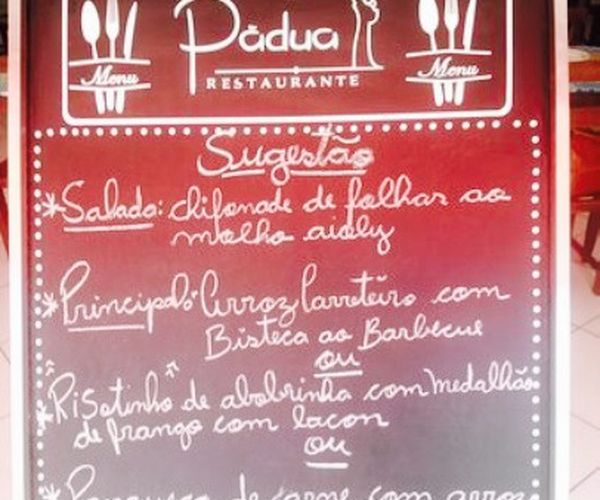 Menu
Pàdua
RESTAURANTE
Menu
Sugestão
*Salada: chifonade de folhar ao
molho aioly
*Principal: Arroz Carreteiro com
Bisteca ao Barbecue
ou
*"Risotinho" de abobrinha com medalhão
de frango com bacon
ou
de carne com arroz